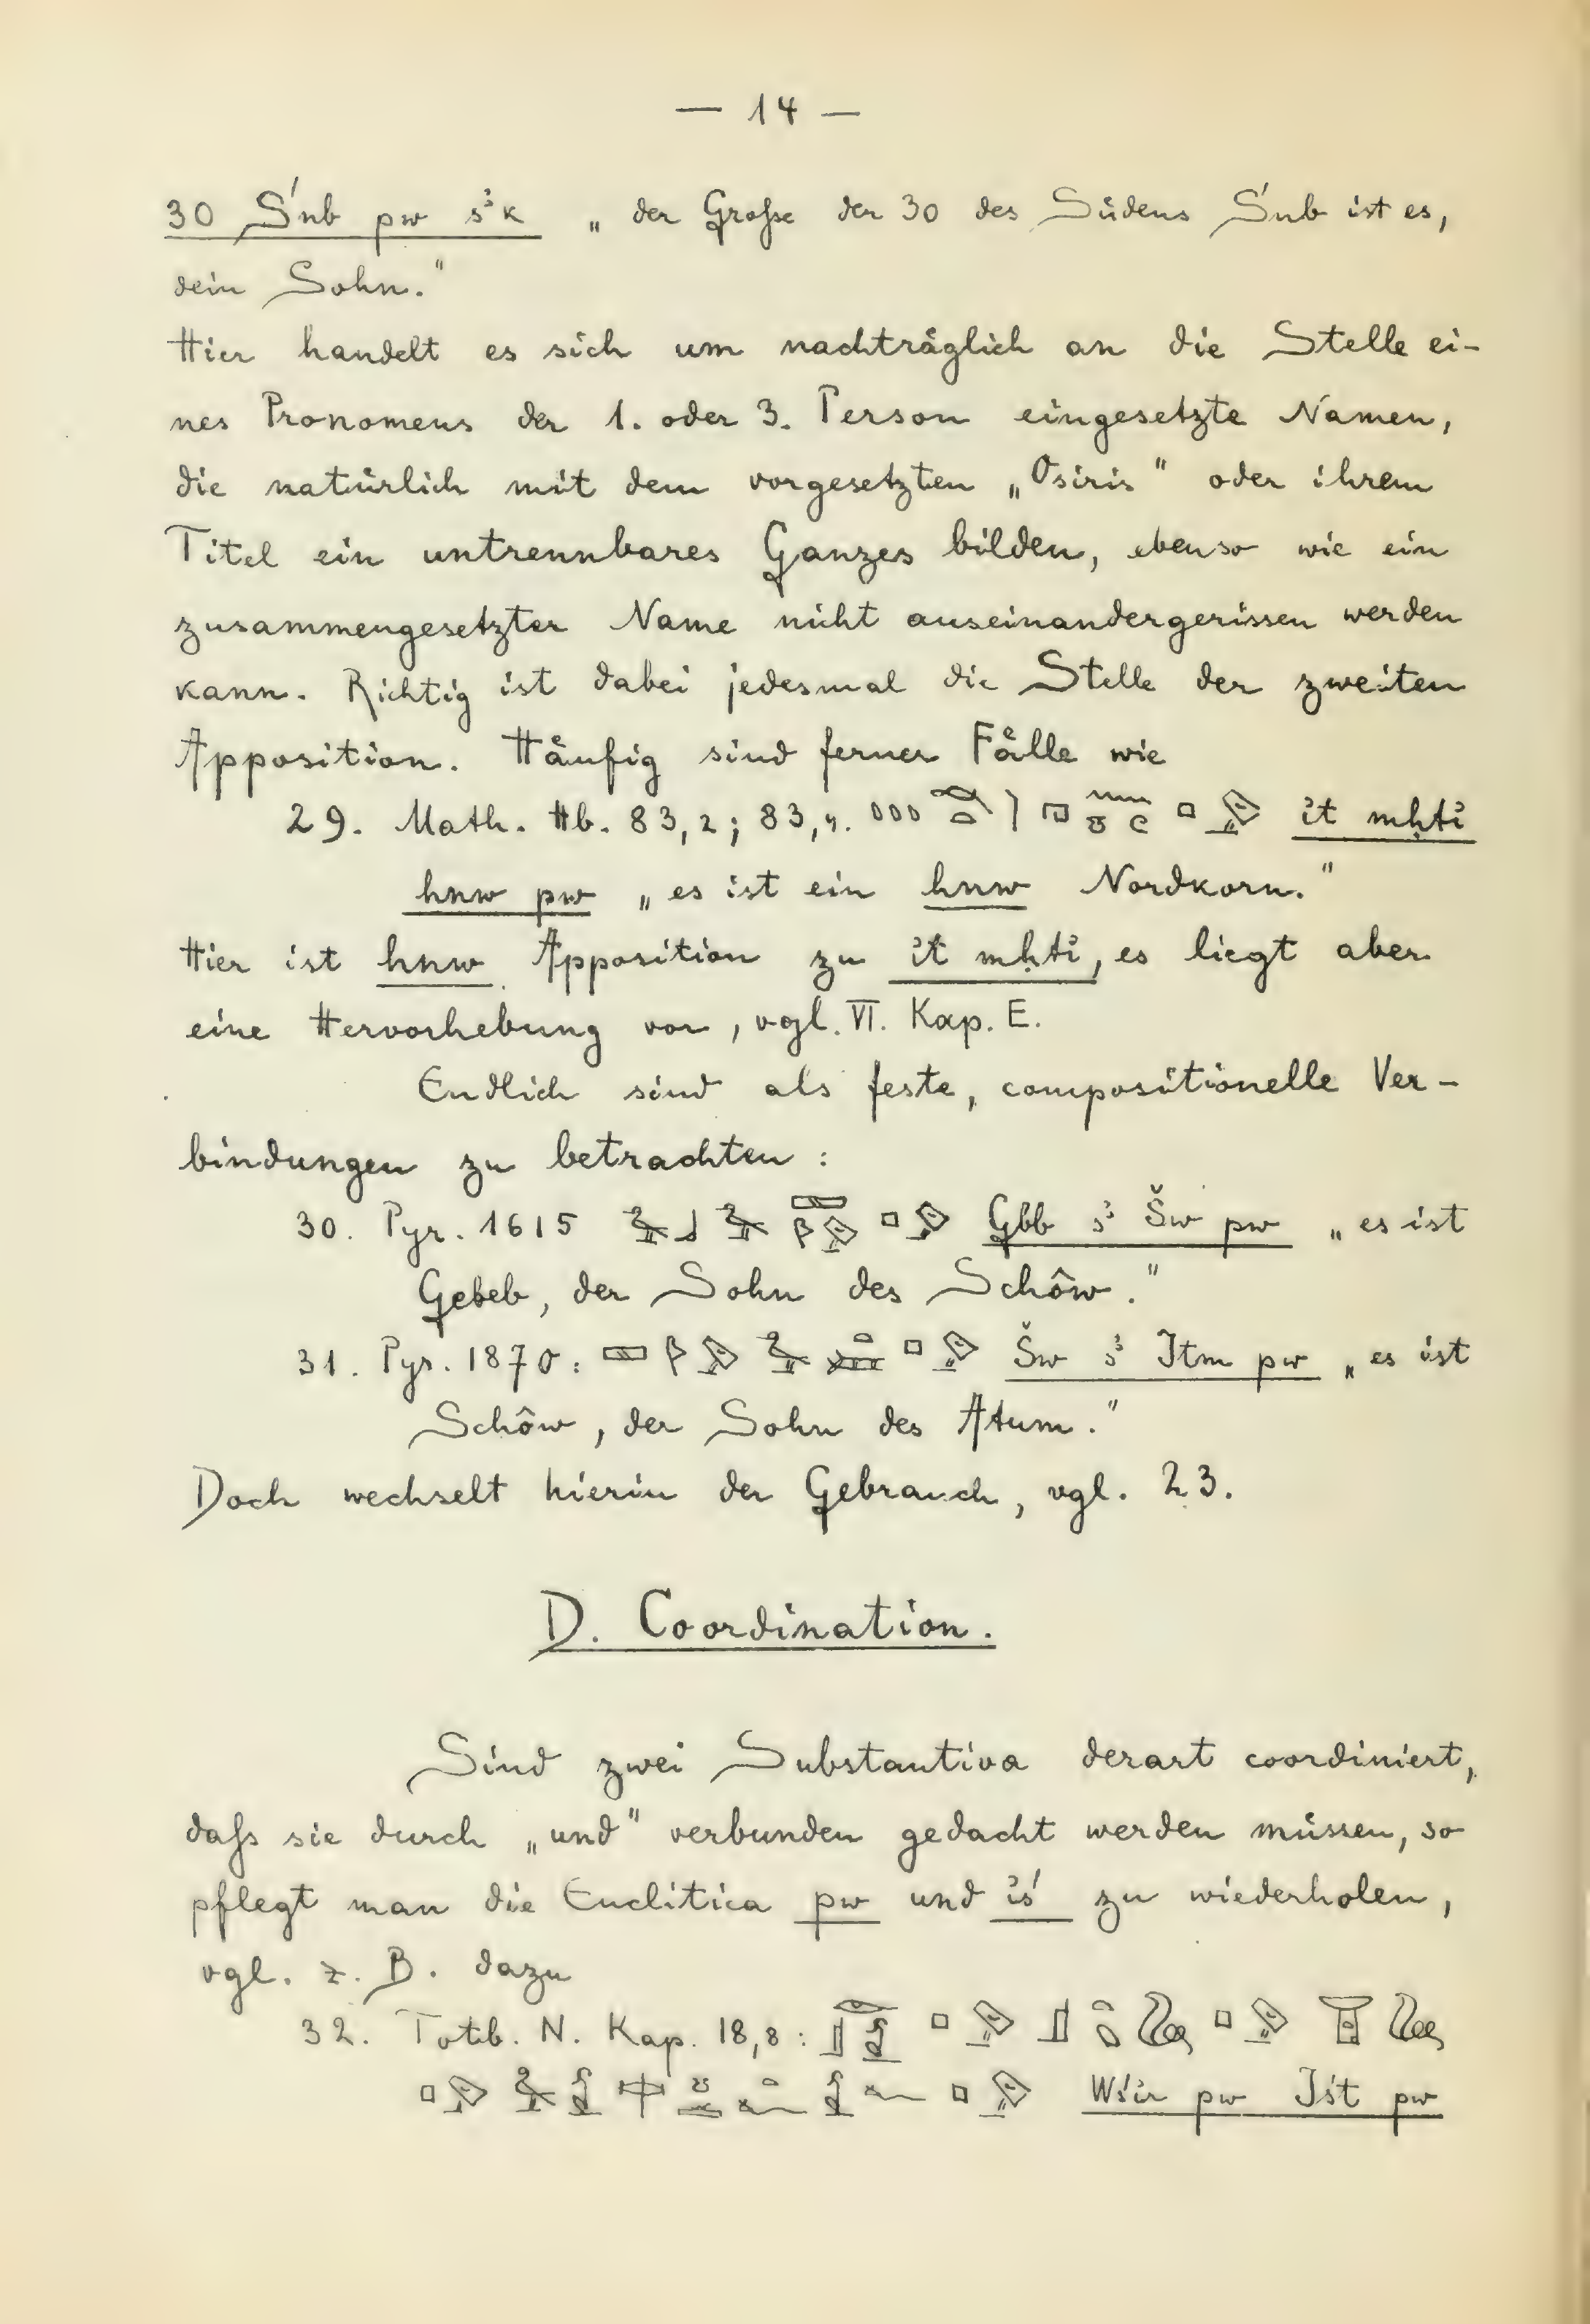 — 14 —
30 Śnb pw sꜣk „der Große der 30 des Südens Śnb ist es,
dein Sohn."
Hier handelt es sich um nachträglich an die Stelle ei-
nes Pronomens der 1. oder 3. Person eingesetzte Namen,
die natürlich mit dem vorgesetzten „Osiris" oder ihrem
Titel ein untrennbares Ganzes bilden, ebenso wie ein
zusammengesetzter Name nicht auseinandergerissen werden
kann. Richtig ist dabei jedesmal die Stelle der zweiten
Apposition. Häufig sind ferner Fälle wie
29. Math. Hb. 83,2; 83,4. it mḥti
hnw pw „es ist ein hnw Nordkorn."
Hier ist hnw Apposition zu it mḥti, es liegt aber
eine Hervorhebung vor, vgl. VI. Kap. E.
Endlich sind als feste, compositionelle Ver-
bindungen zu betrachten:
30. Pyr. 1615 Gbb sꜣ Šw pw „es ist
Gebeb, der Sohn des Schôw."
31. Pyr. 1870: Šw sꜣ Itm pw „es ist
Schôw, der Sohn des Atum."
Doch wechselt hierin der Gebrauch, vgl. 23.
D. Coordination.
Sind zwei Substantiva derart coordiniert,
daß sie durch „und" verbunden gedacht werden müssen, so
pflegt man die Enclitica pw und iś zu wiederholen,
vgl. z. B. dazu
32. Totb. N. Kap. 18,8:
Wśir pw Iśt pw